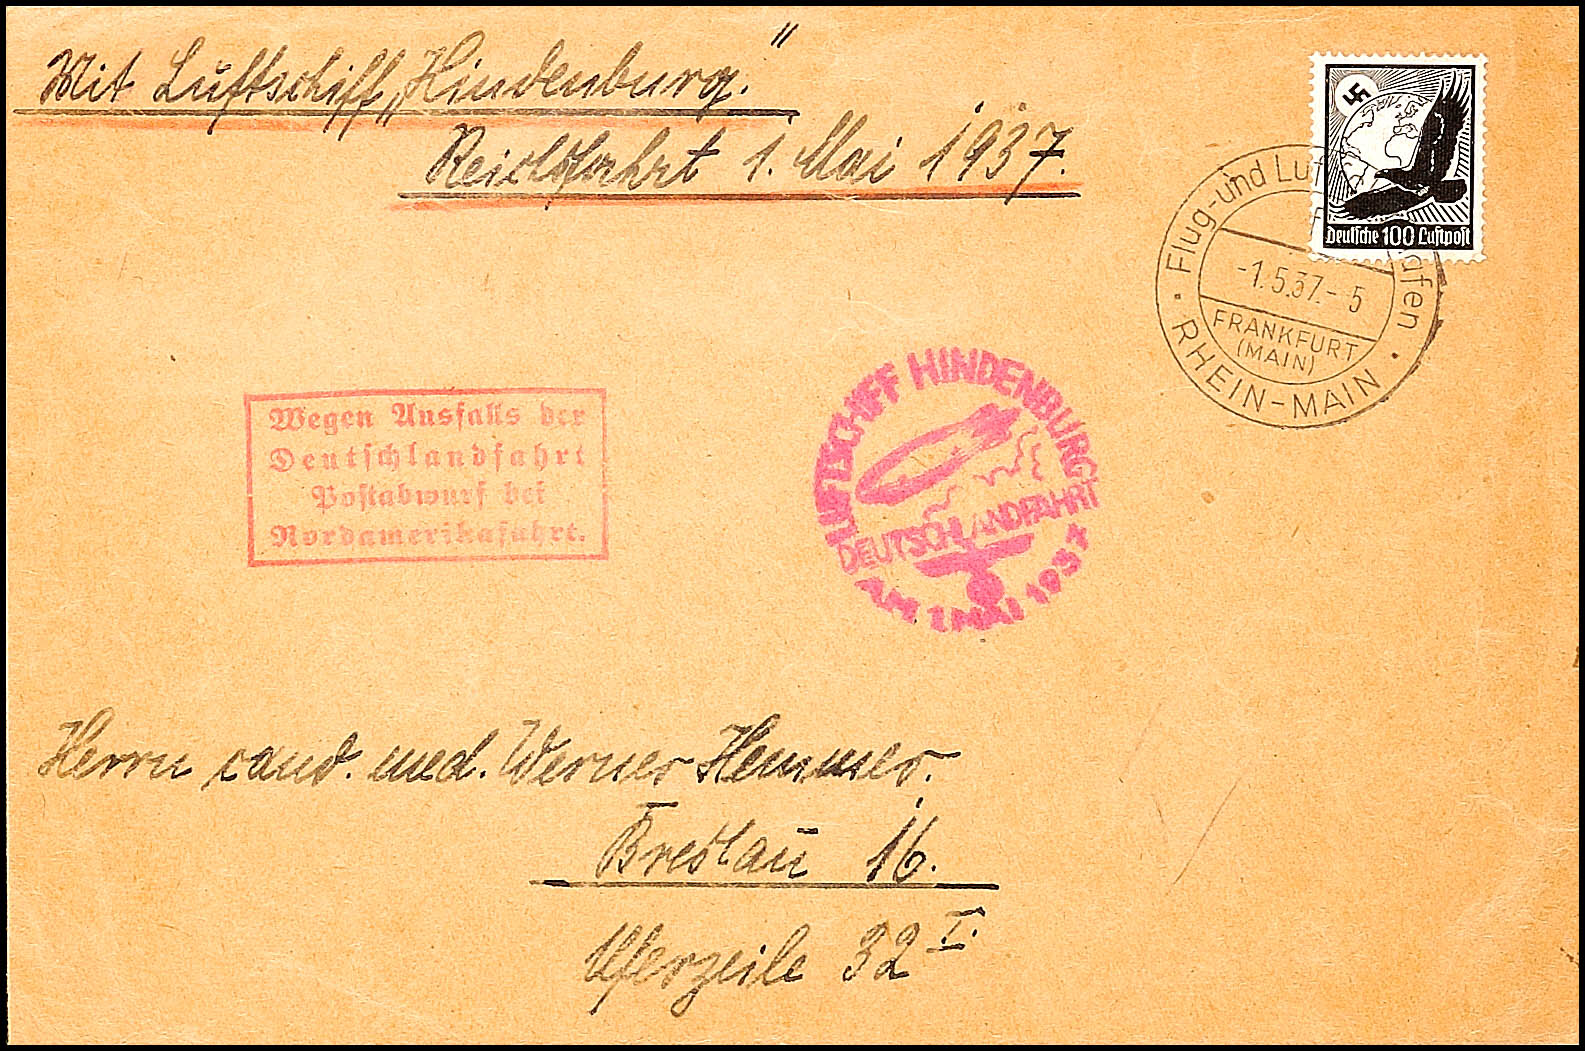 Mit Luftschiff „Hindenburg.“
Reichsfahrt 1. Mai 1937.
Deutsche 100 Luftpost
Flug-und Luf hafen
-1.5.37.-5
FRANKFURT
(MAIN)
RHEIN-MAIN
Wegen Ausfalls der
Deutschlandfahrt
Postabwurf bei
Nordamerikafahrt.
LUFTSCHIFF HINDENBURG
DEUTSCHLANDFAHRT
AM 1.MAI 1937
Herrn cand. med. Werner Hemmer.
Breslau 16.
Uferzeile 32 I.